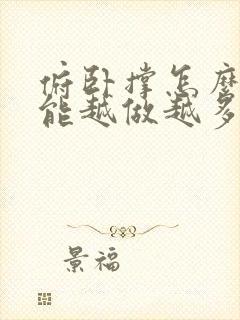 俯卧撑怎麽
能越做越多
景福